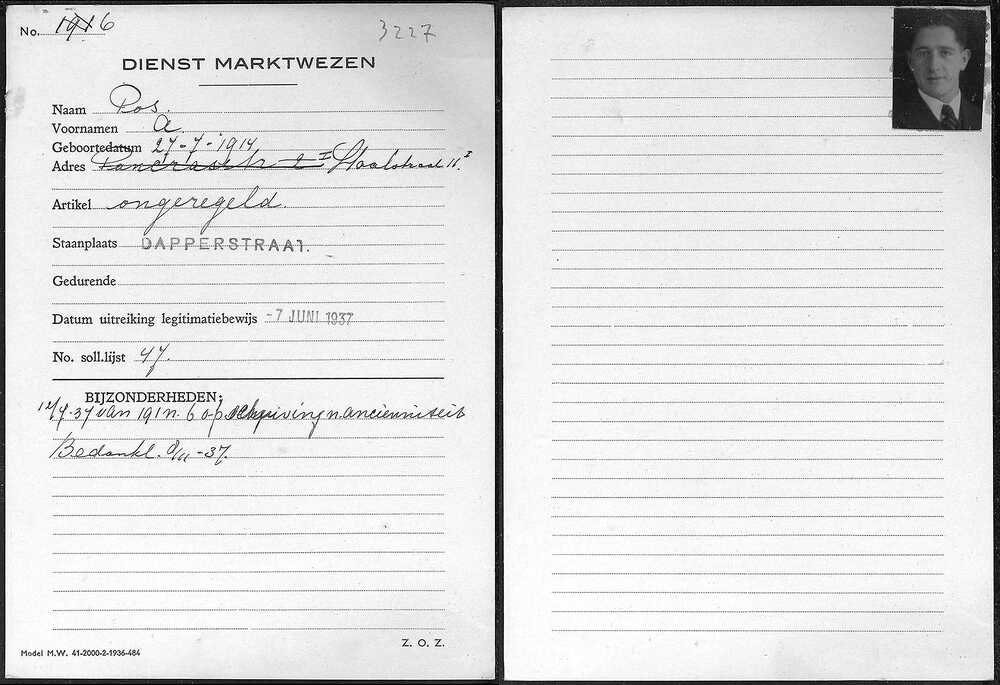 No. 1916 3227
DIENST MARKTWEZEN
Naam Pos.
Voornamen A.
Geboortedatum 27-7-1914
Adres 2 I Staalstraat 11 I
Artikel ongeregeld.
Staanplaats DAPPERSTRAAT.
Gedurende
Datum uitreiking legitimatiebewijs -7 JUNI 1937
No. soll.lijst 47.
BIJZONDERHEDEN:
12/7-37 van 191 n. 6 opschuiving n. ancienniteit
Bedankt. -37.
Z. O. Z.
Model M.W. 41-2000-2-1936-484